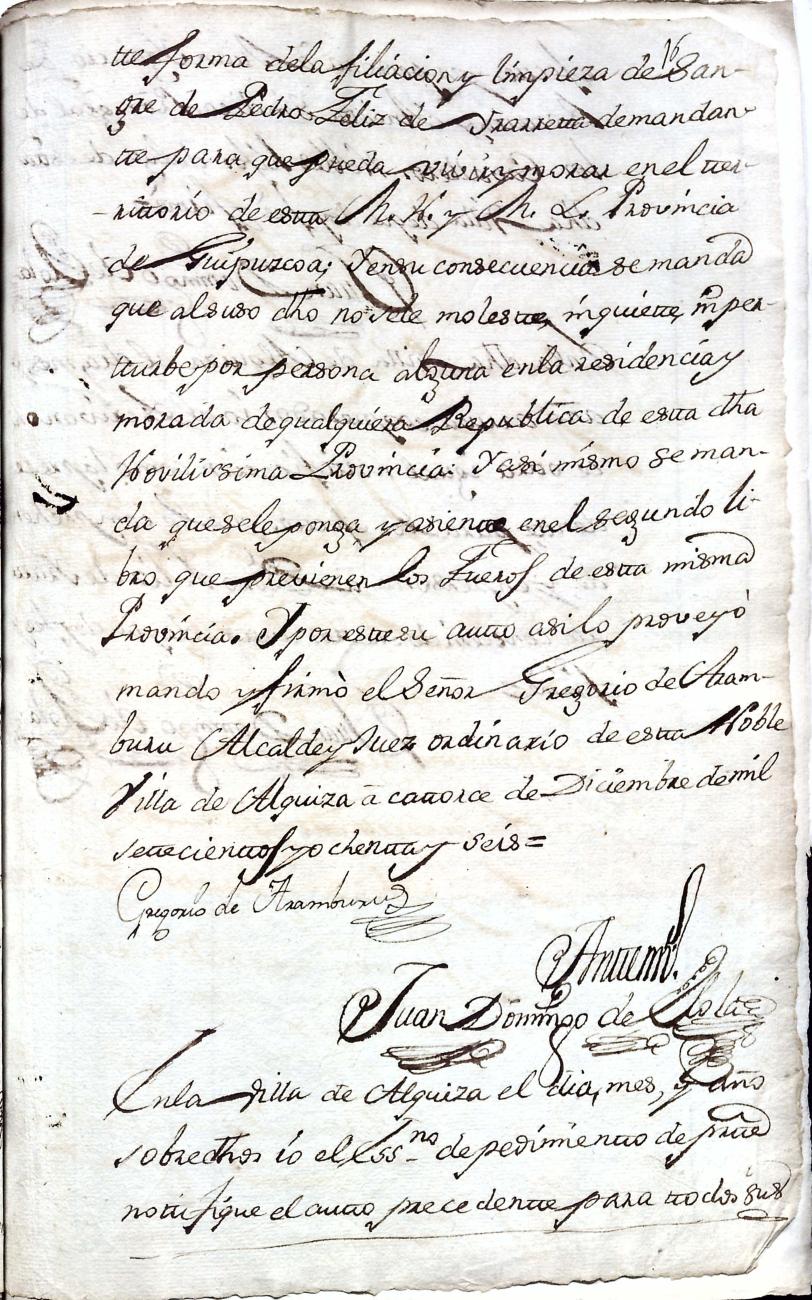 16
tte forma dela filiacion y limpieza de San-
gre de Pedro Feliz de Yrarretta demandan-
tte para que pueda vivir y morar en el tter-
rittorio de estta M. N. y M. L. Provincia
de Guipuzcoa; Y en su consecuencia se manda
que al suso dho no se le moleste, inquiette, ni per-
tturbe por persona alguna en la residencia y
morada de qualquiera Republica de estta dha
Novilissima Provincia: Y asi mismo se man-
da que se le ponga y asientte en el segundo li-
bro que previenen los Fueros de estta misma
Provincia. Y por estte su autto asi lo proveyò
mando y firmò el Señor Gregorio de Aram-
buru Alcalde y Juez ordinario de estta Noble
Villa de Alquiza â cattorce de Diciembre de mil
settecienttos y ochentta y seis=
Gregorio de Aramburu
Antte mi.
Juan Domingo de
En la Villa de Alquiza el dia, mes, y año
sobredhos io el Ess.no de pedimientto de partte
nottifique el autto precedentte para ttodos sus